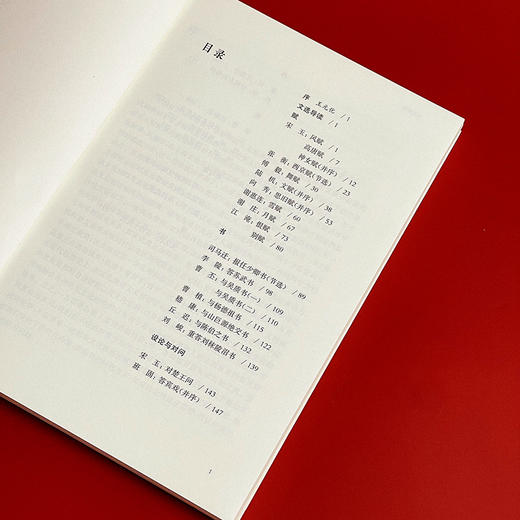 目录
序 王元化 / 1
文选导读 / 1
赋
宋 玉：风赋 / 1
高唐赋 / 7
神女赋(并序) / 12
张 衡：西京赋(节选) / 23
傅 毅：舞赋 / 30
陆 机：文赋(并序) / 38
向 秀：思旧赋(并序) / 53
谢惠连：雪赋 / 60
谢 庄：月赋 / 67
江 淹：恨赋 / 73
别赋 / 80
书
司马迁：报任少卿书(节选) / 89
李 陵：答苏武书 / 98
曹 丕：与吴质书(一) / 109
与吴质书(二) / 110
曹 植：与杨德祖书 / 115
嵇 康：与山巨源绝交书 / 122
丘 迟：与陈伯之书 / 132
刘 峻：重答刘秣陵沼书 / 139
设论与对问
宋 玉：对楚王问 / 143
班 固：答宾戏(并序) / 147
1